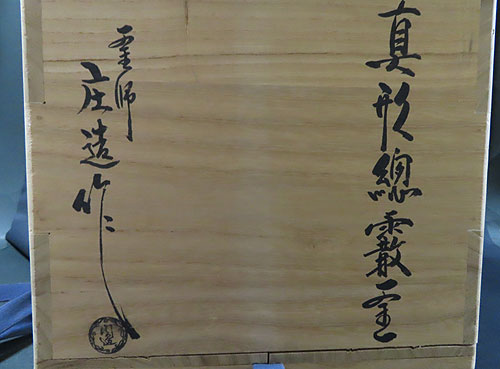 真形總霰釜
釜師
庄造作